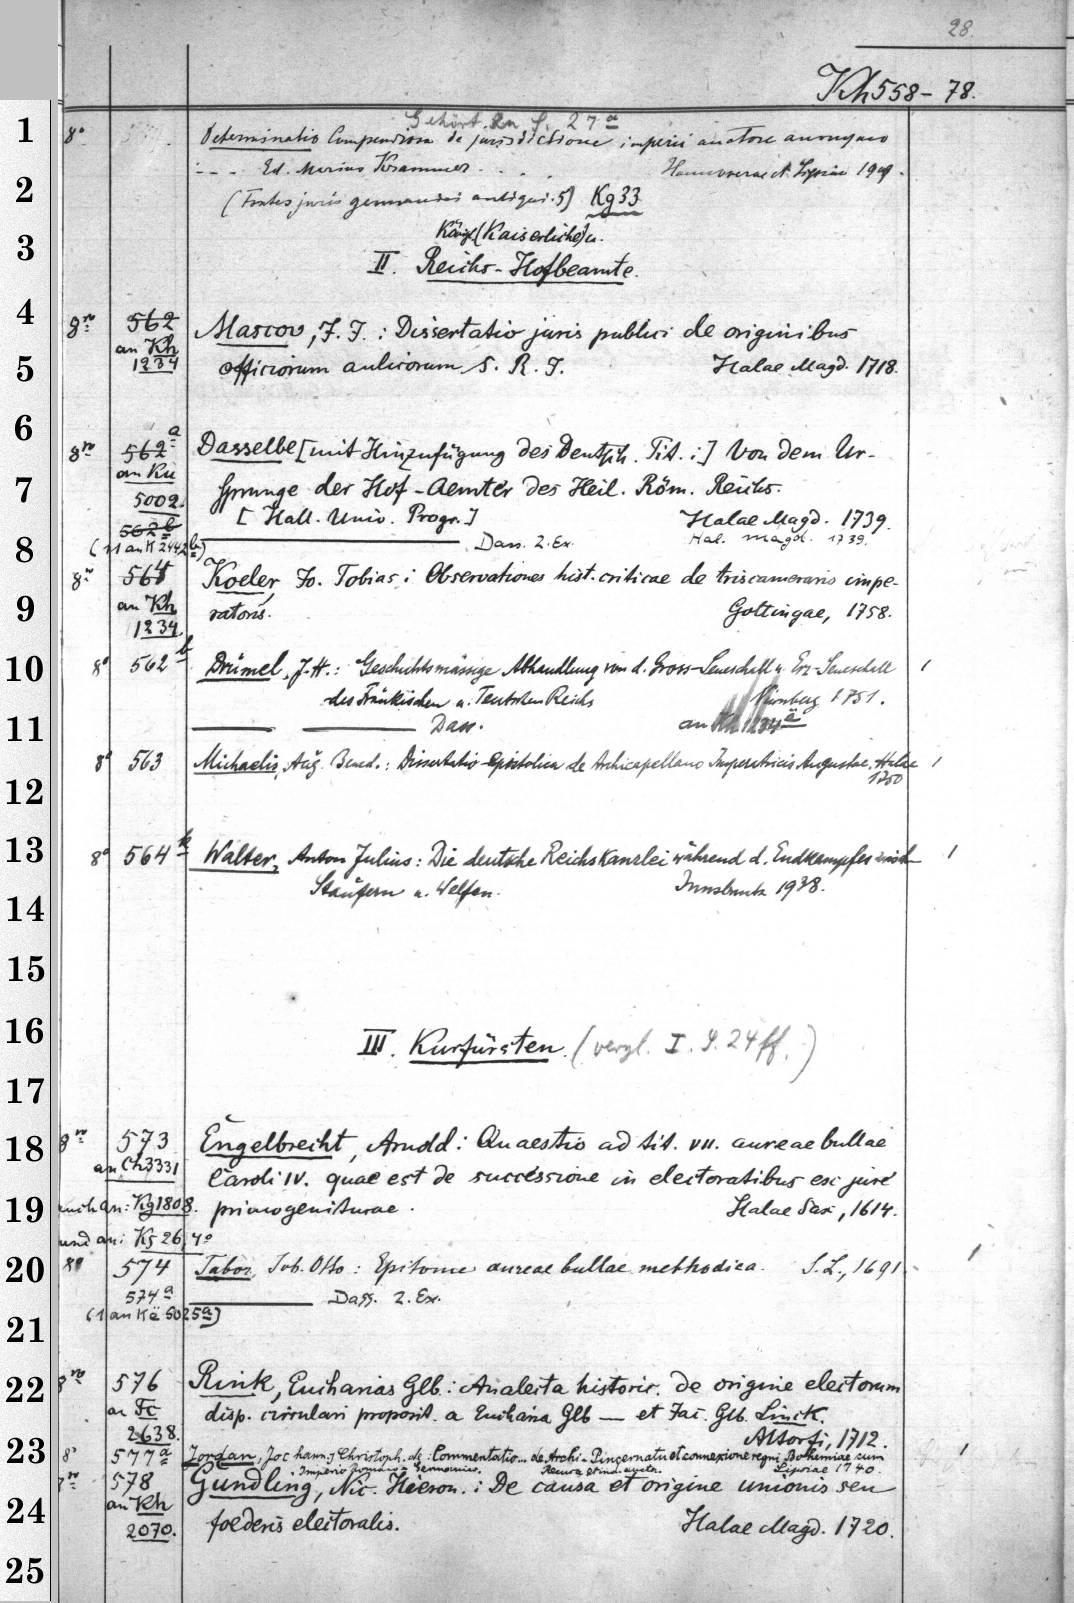 28.
Kh 558 - 78.
Gehört zu S. 27a
1
8° Determinatio Compendiosa de jurisdictione imperii auctore anonymo
- - - Ed. Marius Krammer. . . . Hannoverae et Lipsiae 1909.
2
(Fontes juris germanici antiqui. 5) Kg 33
3
Königl. (Kaiserliche) u.
II. Reichs-Hofbeamte.
4
8vo 562 Mascov, J. J.: Dissertatio juris publici de originibus
an Kh
5
1234 officiorum aulicorum S. R. J. Halae Magd. 1718.
6
8vo 562a Dasselbe [mit Hinzufügung des Deutsch. Tit.:] Von dem Ur-
an Ku
7
5002. sprunge der Hof-Aemter des Heil. Röm. Reichs.
[Hall. Univ. Progr.] Halae Magd. 1739.
562b
8
(11 an K 2442b) Dass. 2. Ex. Hal. Magd. 1739.
8vo 564 Koeler, Jo. Tobias: Observationes hist. criticae de triscamerario impe-
9
an Kh ratoris. Gottingae, 1758.
1234.
10
8° 562b Drümel, J. H.: Geschichtsmässige Abhandlung von d. Gross-Seneschall u. Erz-Seneschall 1
des Fränkischen u. Teutschen Reichs Nürnberg 1751.
11
Dass. an Kh 1234ä
8° 563 Michaelis, Aug. Bened.: Dissertatio epistolica de Archicapellano Imperatricis Augustae. Halae 1
12
1750
13
8° 564k Walter, Anton Julius: Die deutsche Reichskanzlei während d. Endkampfes zwisch. 1
Staufern u. Welfen. Innsbruck 1938.
14
15
16
III. Kurfürsten. (vergl. I. S. 24 ff.)
17
18
8vo 573 Engelbrecht, Arnold: Quaestio ad tit. VII. aureae bullae
an Ch 3331
Caroli IV. quae est de successione in electoratibus ex jure
19
auch an: Kg 1808. primogeniturae. Halae Sax., 1614.
und an: Ks 26, 4°
20
8° 574 Tabor, Joh. Otto: Epitome aureae bullae methodica. S. L., 1691. 1
574a Dass. 2. Ex.
(1 an Kë 5025a)
21
22
8vo 576 Rink, Eucharius Glb.: Analecta historic. de origine electorum
an Fc disp. circulari proposit. a Euchario Glb — et Jac. Glb. Linck.
2638. Altorfi, 1712.
23
8° 577a Jordan, Joc hann. Christoph. de: Commentatio... de Archi-Pincernatu et connexione regni Bohemiae cum 1
Imperio Romano Germanico. Lipsiae 1740.
8vo 578 Gundling, Nic. Hieron.: De causa et origine unionis seu
24
an Kh
2070. foederis electoralis. Halae Magd. 1720.
25